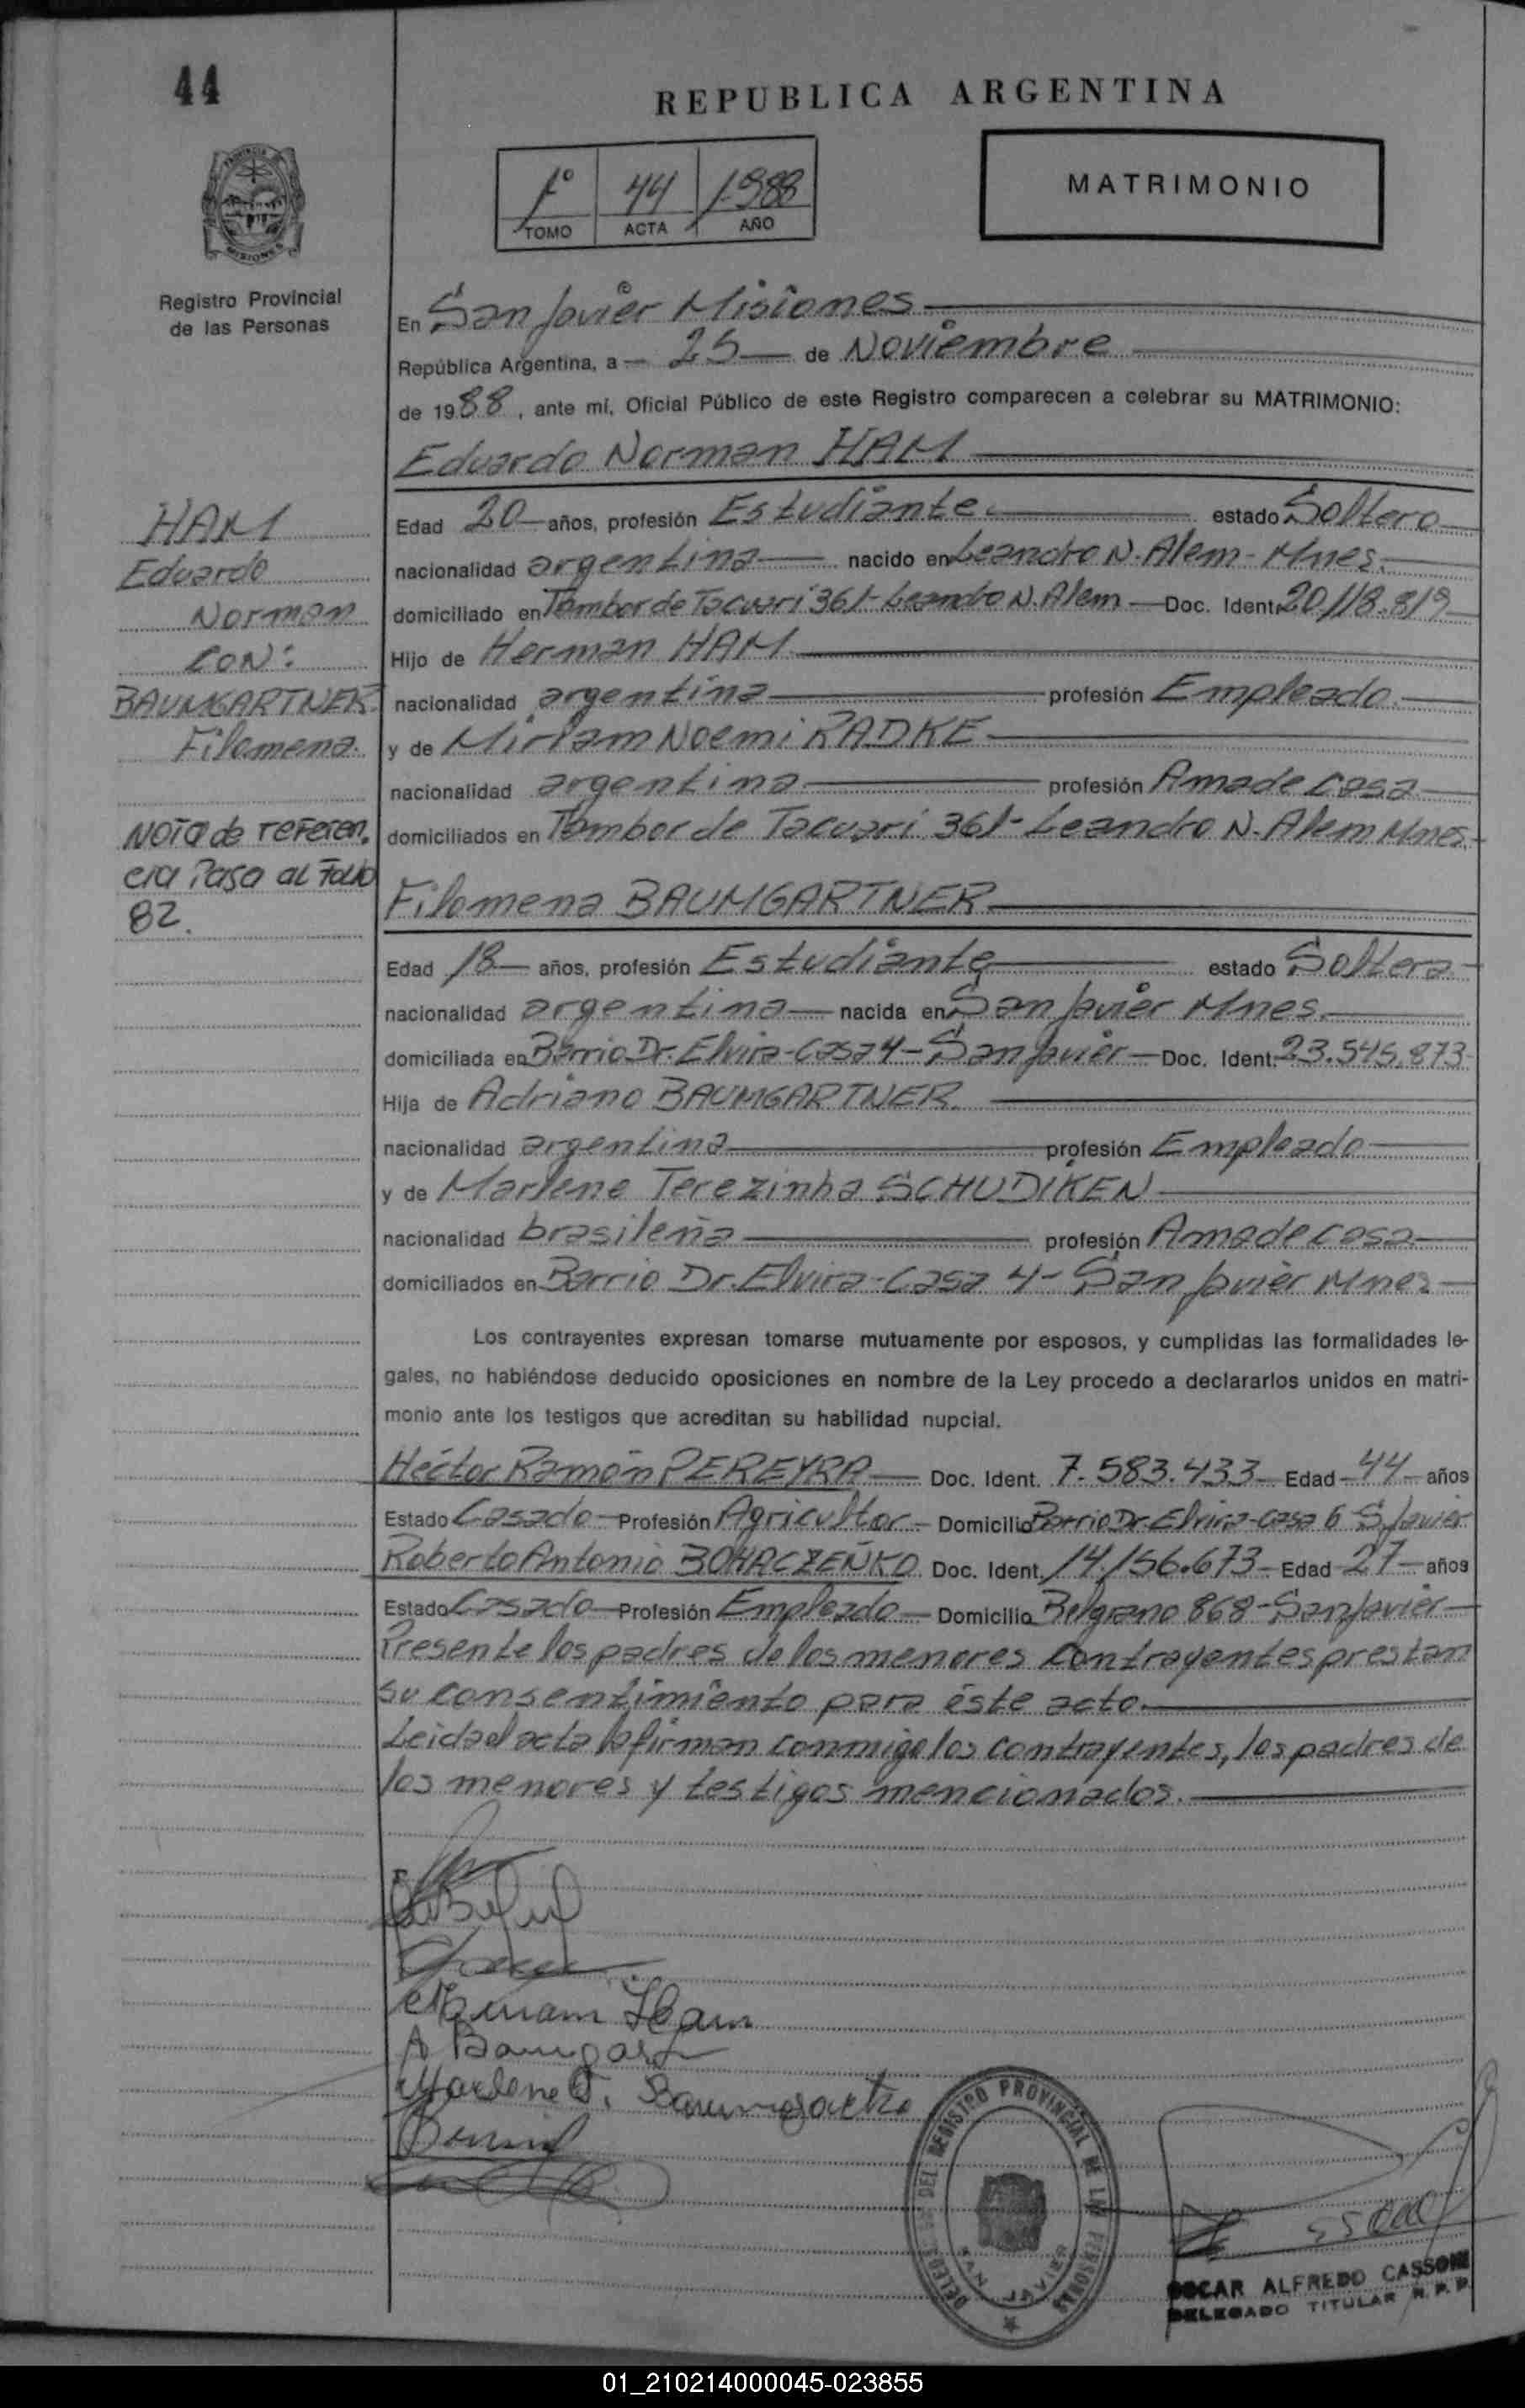 44
REPUBLICA ARGENTINA
1º 44 1.988
TOMO ACTA AÑO
MATRIMONIO
PROVINCIA
MISIONES
Registro Provincial
de las Personas
En San Javier Misiones
República Argentina, a 25 de Noviembre
de 1988, ante mí, Oficial Público de este Registro comparecen a celebrar su MATRIMONIO:
Eduardo Norman HAM
HAM
Eduardo
Norman
CON:
BAUMGARTNER
Filomena.
Nota de referen.
cia Pasa al Folio
82.
Edad 20 años, profesión Estudiante. estado Soltero
nacionalidad argentina nacido en Leandro N. Alem - Mnes.
domiciliado en Tambor de Tacuari 361- Leandro N. Alem Doc. Ident. 20.118.819
Hijo de Herman HAM
nacionalidad argentina profesión Empleado.
y de Miriam Noemi RADKE
nacionalidad argentina profesión Ama de casa
domiciliados en Tambor de Tacuari 361- Leandro N. Alem Mnes.
Filomena BAUMGARTNER
Edad 18 años, profesión Estudiante estado Soltera
nacionalidad argentina nacida en San Javier Mnes.
domiciliada en Barrio Dr. Elvira-Casa 4- San Javier Doc. Ident. 23.545.873
Hija de Adriano BAUMGARTNER.
nacionalidad argentina profesión Empleado
y de Marlene Terezinha SCHUDIKEN
nacionalidad brasileña profesión Ama de casa
domiciliados en Barrio Dr. Elvira-Casa 4- San Javier Mnes
Los contrayentes expresan tomarse mutuamente por esposos, y cumplidas las formalidades le-
gales, no habiéndose deducido oposiciones en nombre de la Ley procedo a declararlos unidos en matri-
monio ante los testigos que acreditan su habilidad nupcial.
Héctor Ramón PEREYRA Doc. Ident. 7.583.433 Edad 44 años
Estado Casado Profesión Agricultor Domicilio Barrio Dr. Elvira-casa 6 S. Javier
Roberto Antonio BOHACZEÑKO Doc. Ident. 14.156.673 Edad 27 años
Estado Casado Profesión Empleado Domicilio Belgrano 868-San Javier
Presente los padres de los menores contrayentes prestan
su consentimiento para éste acto.
Leida el acta la firman conmigo los contrayentes, los padres de
los menores y testigos mencionados.
Miriam Ham
A Baumgart
Marlene T. Baumgartne
DELEG. DEL REGISTRO PROVINCIAL DE LAS PERSONAS
SAN JAVIER
OSCAR ALFREDO CASSONI
DELEGADO TITULAR R. P. P.
01_210214000045-023855